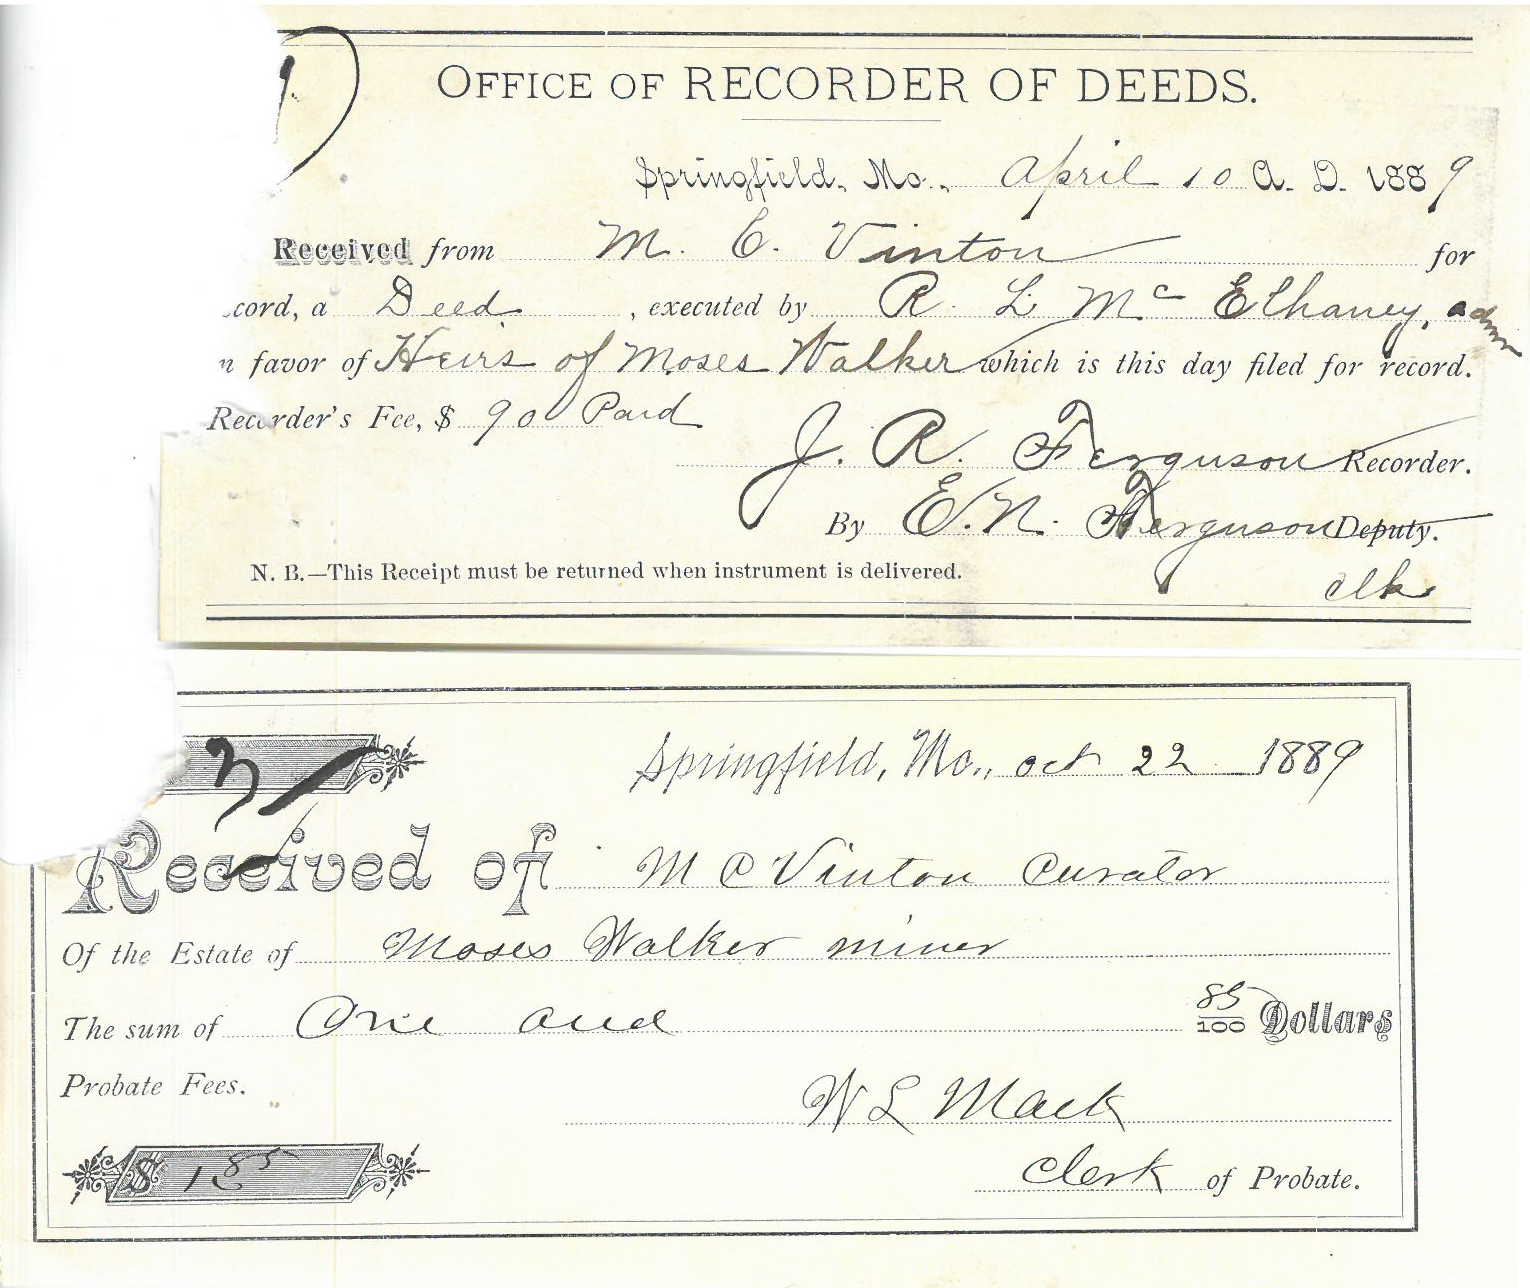 OFFICE OF RECORDER OF DEEDS.
Springfield, Mo., April 10 A. D. 1889
Received from M. C. Vinton for
cord, a Deed, executed by R. L. McElhaney, adm
n favor of Heirs of Moses Walker which is this day filed for record.
Recorder's Fee, $ 90 Paid
J. R. Ferguson Recorder.
By E. N. Ferguson Deputy.
clk
N. B.—This Receipt must be returned when instrument is delivered.
Springfield, Mo., Oct 22 1889
Received of M C Vinton Curator
Of the Estate of Moses Walker miner
The sum of One and 85/100 Dollars
Probate Fees.
W L Mack
$ 1 85 Clerk of Probate.